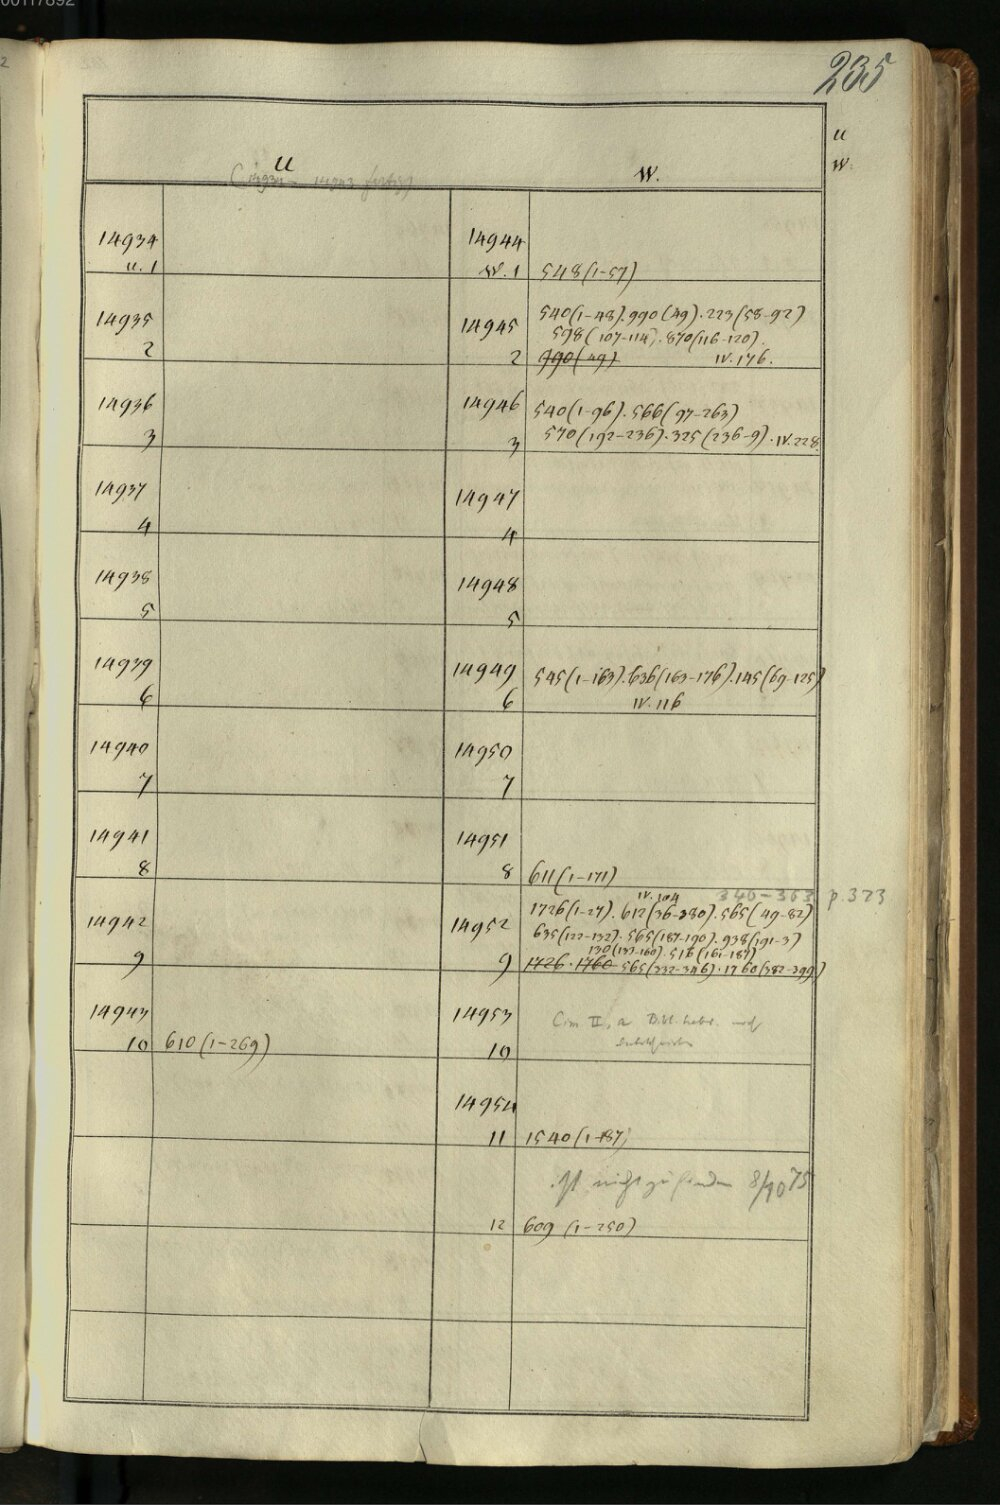 235
U
W.
U
W.
14934
U. 1
14935
2
14936
3
14937
4
14938
5
14939
6
14940
7
14941
8
14942
9
14943
10 610 (1-269)
14944
W. 1 548 (1-57)
14945 540 (1-48). 990 (49). 223 (58-92)
598 (107-114). 870 (116-120).
2 990 (49) IV. 176.
14946 540 (1-96). 566 (97-263)
3 570 (192-236). 325 (236-9). IV. 228
14947
4
14948
5
14949 545 (1-163). 636 (163-176). 145 (69-125)
6 IV. 116
14950
7
14951
8 611 (1-171)
IV. 104 340-363 p. 323
14952 1726 (1-27). 612 (36-380). 565 (49-82)
635 (122-132). 565 (187-190). 938 (191-3)
130 (133-160). 516 (161-187)
9 1726. 1760 565 (332-346). 1760 (382-399)
14953 Cim II, a Bibl. hebr.
10
14954
11 1540 (1-187)
Ist nicht zu finden 8/10 75
12 609 (1-250)